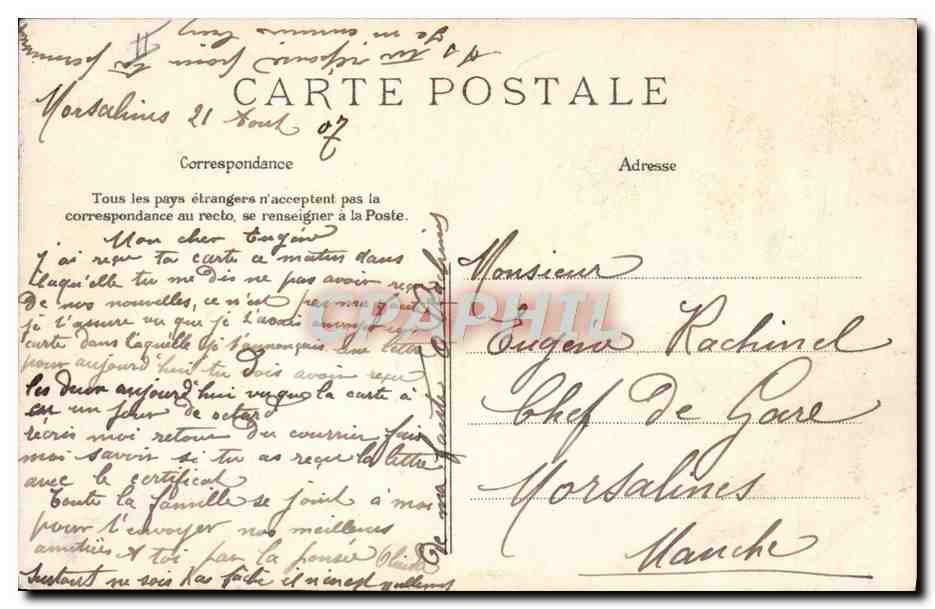 CARTE POSTALE
Morsalines 21 Aout 07
Correspondance
Adresse
Tous les pays étrangers n'acceptent pas la
correspondance au recto, se renseigner à la Poste.
Mon cher Eugène
J'ai reçu ta carte ce matin dans
laquelle tu me dis ne pas avoir reçu
De nos nouvelles, ce n'est
je t'assure vu que je t'avais envoyé une
carte dans laquelle je t'annonçais une lettre
pour aujourd'hui tu dois avoir reçu
les deux aujourd'hui vu que la carte à
eu un jour de retard
écris moi retour du courrier fais
moi savoir si tu as reçu la lettre
avec le certificat
Toute la famille se joint à moi
pour t'envoyer nos meilleures
amitiés A toi par la pensée
Surtout ne sois pas faché il n'en est
De ma faute
Monsieur
Eugène Rachinel
Chef de Gare
Morsalines
Manche
CRAPHIL